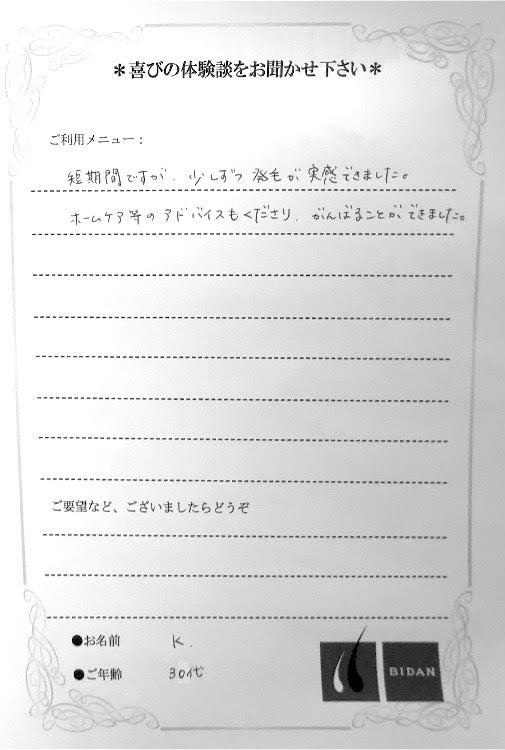 ＊喜びの体験談をお聞かせ下さい＊
ご利用メニュー：
短期間ですが、少しずつ発毛が実感できました。
ホームケア等のアドバイスもくださり、がんばることができました。
ご要望など、ございましたらどうぞ
●お名前 K.
●ご年齢 30代
BIDAN